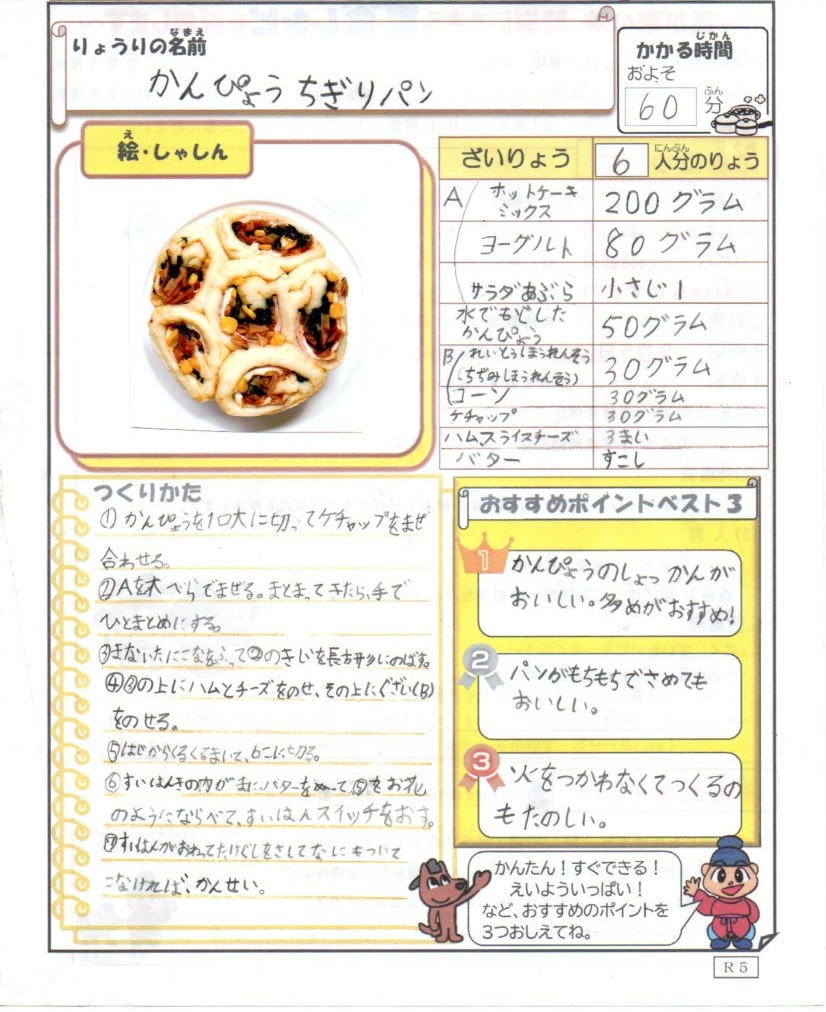 りょうりの名前
なまえ
かんぴょうちぎりパン
かかる時間
じかん
およそ
60
分
ふん
絵・しゃしん
え
ざいりょう
6
人分のりょう
にんぶん
A ホットケーキミックス 200グラム
ヨーグルト 80グラム
サラダあぶら 小さじ1
水でもどしたかんぴょう 50グラム
B れいとうほうれんそう(ちぢみほうれんそう) 30グラム
コーン 30グラム
ケチャップ 30グラム
ハム、スライスチーズ 3まい
バター すこし
つくりかた
①かんぴょうを1口大に切ってケチャップをまぜ
合わせる。
②Aを木べらでまぜる。まとまってきたら、手で
ひとまとめにする。
③まないたにこなをふって②のきじを長方形にのばす。
④③の上にハムとチーズをのせ、その上にぐざい(B)
をのせる。
⑤はじからくるくるまいて、6こに切る。
⑥すいはんきの内がまに、バターをぬって⑤をお花
のようにならべて、すいはんスイッチをおす。
⑦すいはんがおわってたけぐしをさしてなにもついて
こなければ、かんせい。
おすすめポイントベスト3
1
かんぴょうのしょっかんが
おいしい。多めがおすすめ!
2
パンがもちもちでさめても
おいしい。
3
火をつかわなくてつくるの
もたのしい。
かんたん!すぐできる!
えいよういっぱい!
など、おすすめのポイントを
3つおしえてね。
R5